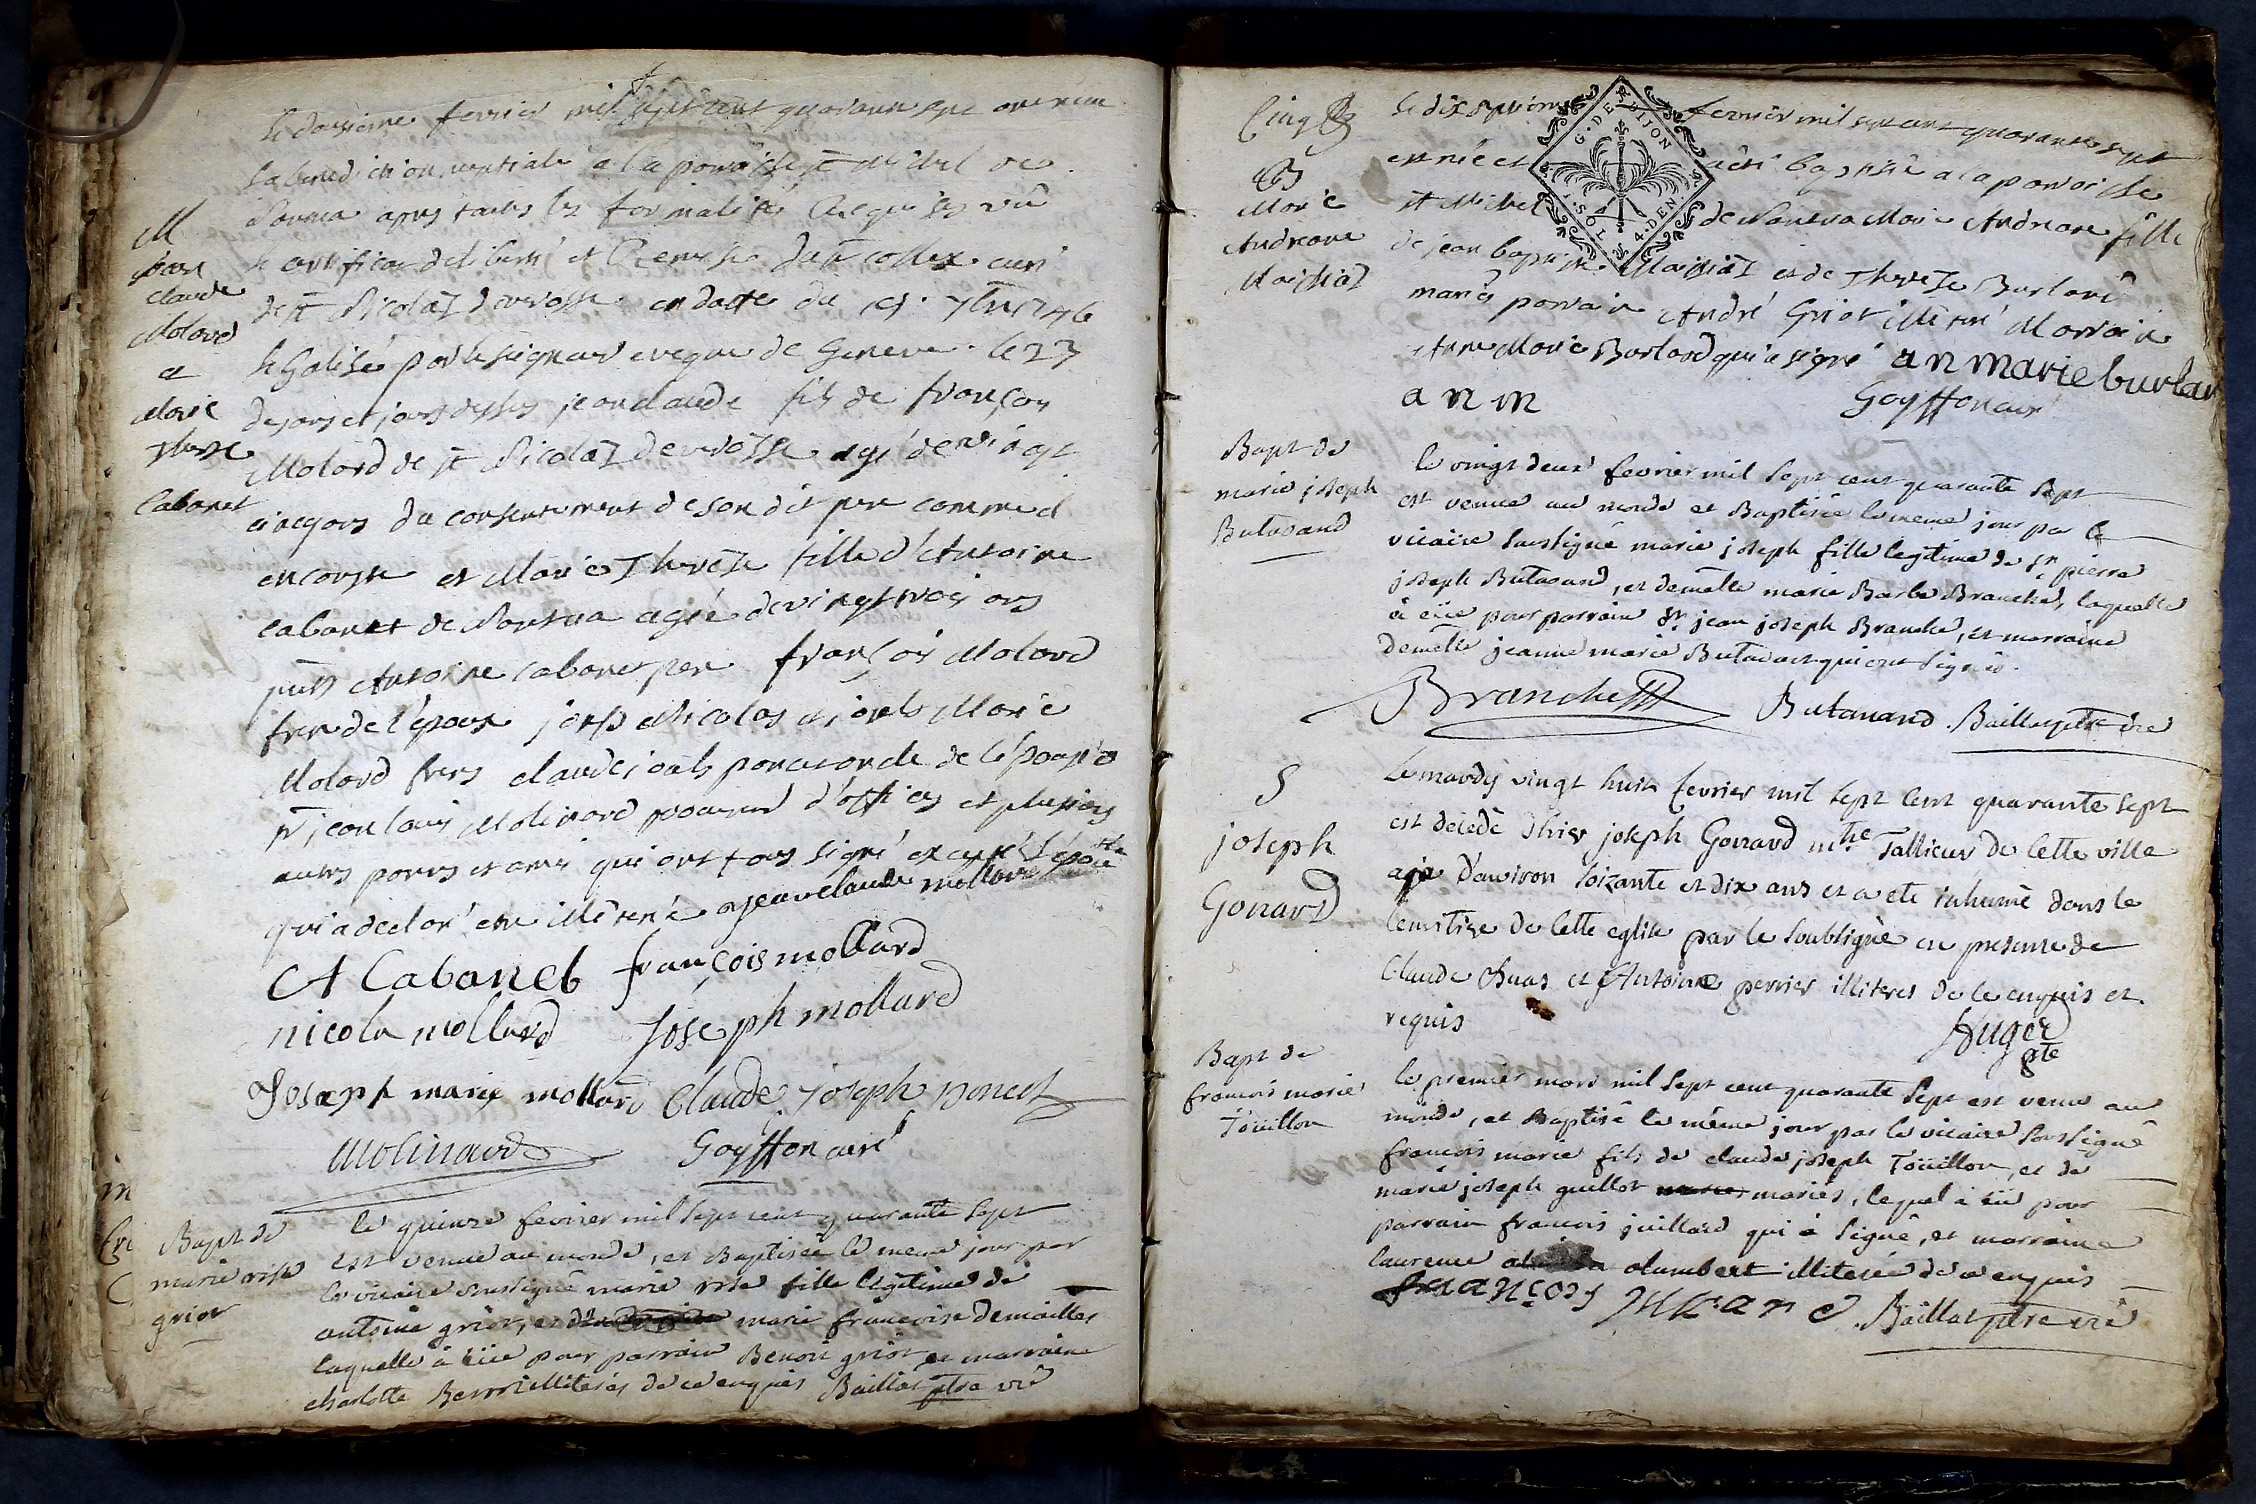 le douzieme fevrier mil sept cent quarante sept ont recu
la benediction nuptiale a la paroisse st Michel de
Nantua apres toutes les formalités requises vû
le certificat de liberté et remise du sr collex curé
de st Nicolaz deverosse en datte du 7bre 1746
legalisé par le seigneur eveque de Geneve le 23
jean claude fils de françois
Molard de st Nicolaz deverosse agé de vingt
cinq ans du consentement de son dit pere comme il
en conste et Marie Therese fille d'Antoine
cabanet de Nantua agée de vingt trois ans
pnts Antoine cabanet pere françois Molard
frere de l'époux joseph Nicolas et joseph Marie
Molard freres claude joseph poncet oncle de l'épouse
sr jean louis Molinard procureur d'offices et plusieurs
autres parens et amis qui ont tous signé excepté l'épouse
qui a declaré etre illiterée jean claude mollard
M
jean
claude
Molard
et
Marie
Therese
Cabanet
A Cabanet françois mollard
nicola mollard Joseph mollard
Josapf marie mollard Claude Joseph poncet
Molinard Goyffon curé
Bapt de
marie rose
griot
le quinze fevrier mil sept cent quarante sept
est venue au monde, et Baptisée le meme jour par
le vicaire soussigné marie rose fille legitime de
antoine griot, et marie francoise demailles
laquelle à eüe pour parrain Benoit griot et marraine
charlotte illiterés de ce enquis Baillat ptre vic
Cinq
Marie
Andreane
Maissiaz
le dix septieme fevrier mil sept cent quarante sept
est née et a été baptisée a la paroisse
st Michel de Nantua Marie Andreane fille
de jean baptiste Maissiaz et de Therese Burlard
mariés parrain André Griot illiteré Marraine
Anne Marie Burlard qui a signé an marie burlar
a n m Goyffon curé
Bapt de
marie joseph
Butavand
le vingt deux fevrier mil sept cent quarante sept
est venue au monde et Baptisée le meme jour par le
vicaire soussigné marie joseph fille legitime de sr pierre
joseph Butavand, et demelle marie Barbe Branche, laquelle
à eüe pour parrain sr jean joseph Branche, et marraine
demelle jeanne marie Butavant qui ont signés.
Branche Butavand Baillat ptre vic
S
joseph
Gonard
Le mardy vingt huit fevrier mil sept cent quarante sept
est decedé hier joseph Gonard mtre Tallieur de cette ville
agé d'environ soizante et dix ans et a eté inhumé dans le
cemitiere de cette eglise par le soubsigné en presence de
Claude Buas et Antoine perrier illiteres de ce enquis et
requis
Auger
pte
Bapt de
francois marie
Toüillon
le premier mars mil sept cent quarante sept est venu au
monde, et Baptisé le même jour par le vicaire soussigné
francois marie fils de claude joseph Toüillon, et de
marie joseph guillot mariés, lequel à eü pour
parrain francois juillard qui à signé, et marraine
laurence alumbert illiterée de ce enquis
françois juliard Baillat ptre vic
G. DE DIJON
SOLS 4. DEN.